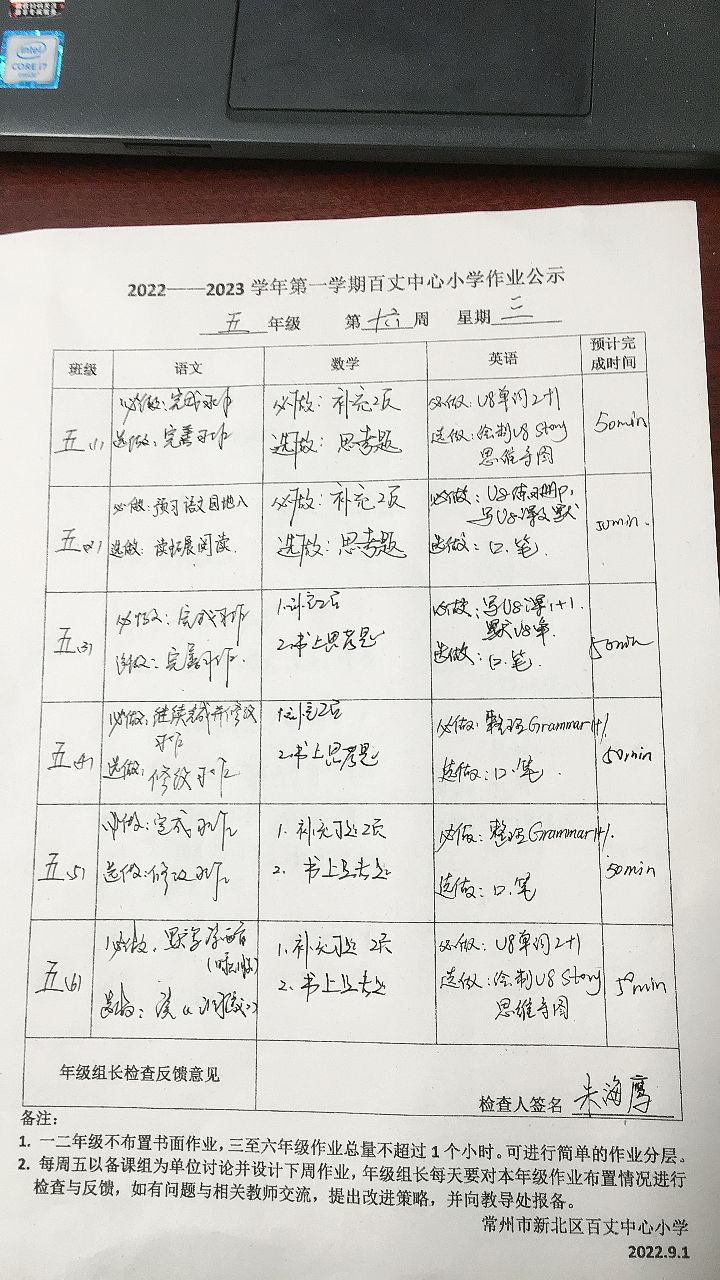 intel
CORE i7
inside
2022——2023 学年第一学期百丈中心小学作业公示
五 年级 第 十六 周 星期 三
班级 语文 数学 英语 预计完成时间
五(1) 必做：完成习作 必做：补充2页 必做：U8单词2+1 50min
选做：完善习作 选做：思考题 选做：绘制U8 Story
思维导图
五(2) 必做：预习语文园地八 必做：补充2页 必做：U8练习册P, 50min.
写U8课文 默
选做：读拓展阅读. 选做：思考题 选做：口.笔
五(3) 必做：完成习作 1.补充2页 必做：写U8课1+1. 50min
默U8单.
选做：完善习作. 2.书上思考题 选做：口.笔.
五(4) 必做：继续完成并修改 1.补充2页 必做：整理Grammar1+1. 50min
习作
选做：修改习作 2.书上思考题 选做：口.笔.
五(5) 必做：完成习作 1.补充习题2页 必做：整理Grammar1+1. 50min
选做：修改习作 2. 书上思考题 选做：口.笔
五(6) 必做： 1.补充习题 2页 必做：U8单词2+1 50min
选做：读 2.书上思考题 选做：绘制U8 Story
思维导图
年级组长检查反馈意见 检查人签名 朱海
备注：
1. 一二年级不布置书面作业，三至六年级作业总量不超过 1 个小时。可进行简单的作业分层。
2. 每周五以备课组为单位讨论并设计下周作业，年级组长每天要对本年级作业布置情况进行
检查与反馈，如有问题与相关教师交流，提出改进策略，并向教导处报备。
常州市新北区百丈中心小学
2022.9.1